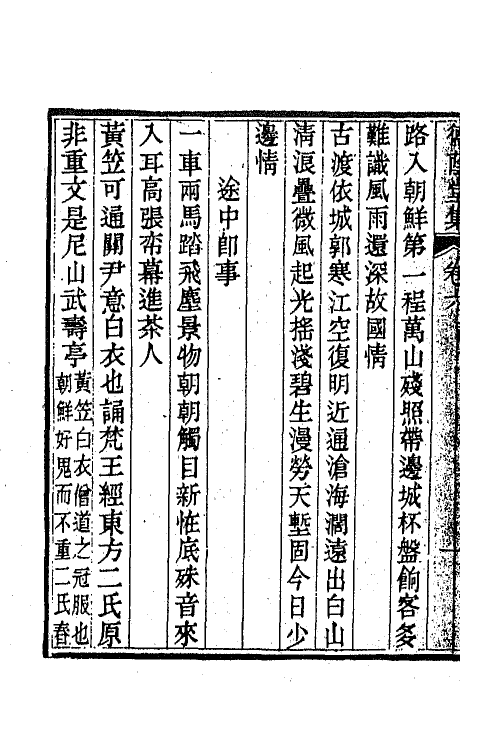 德蔭堂集 卷六
路入朝鮮第一程萬山殘照帶邊城杯盤餉客多
難識風雨還深故國情
古渡依城郭寒江空復明近通滄海濶遠出白山
淸浪疊微風起光搖淺碧生漫勞天塹固今日少
邊情
途中卽事
一車兩馬踏飛塵景物朝朝觸目新恠底殊音來
入耳高張布幕進茶人
黃笠可通關尹意白衣也誦梵王經東方二氏原
非重文是尼山武壽亭黃笠白衣僧道之冠服也
朝鮮好鬼而不重二氏春